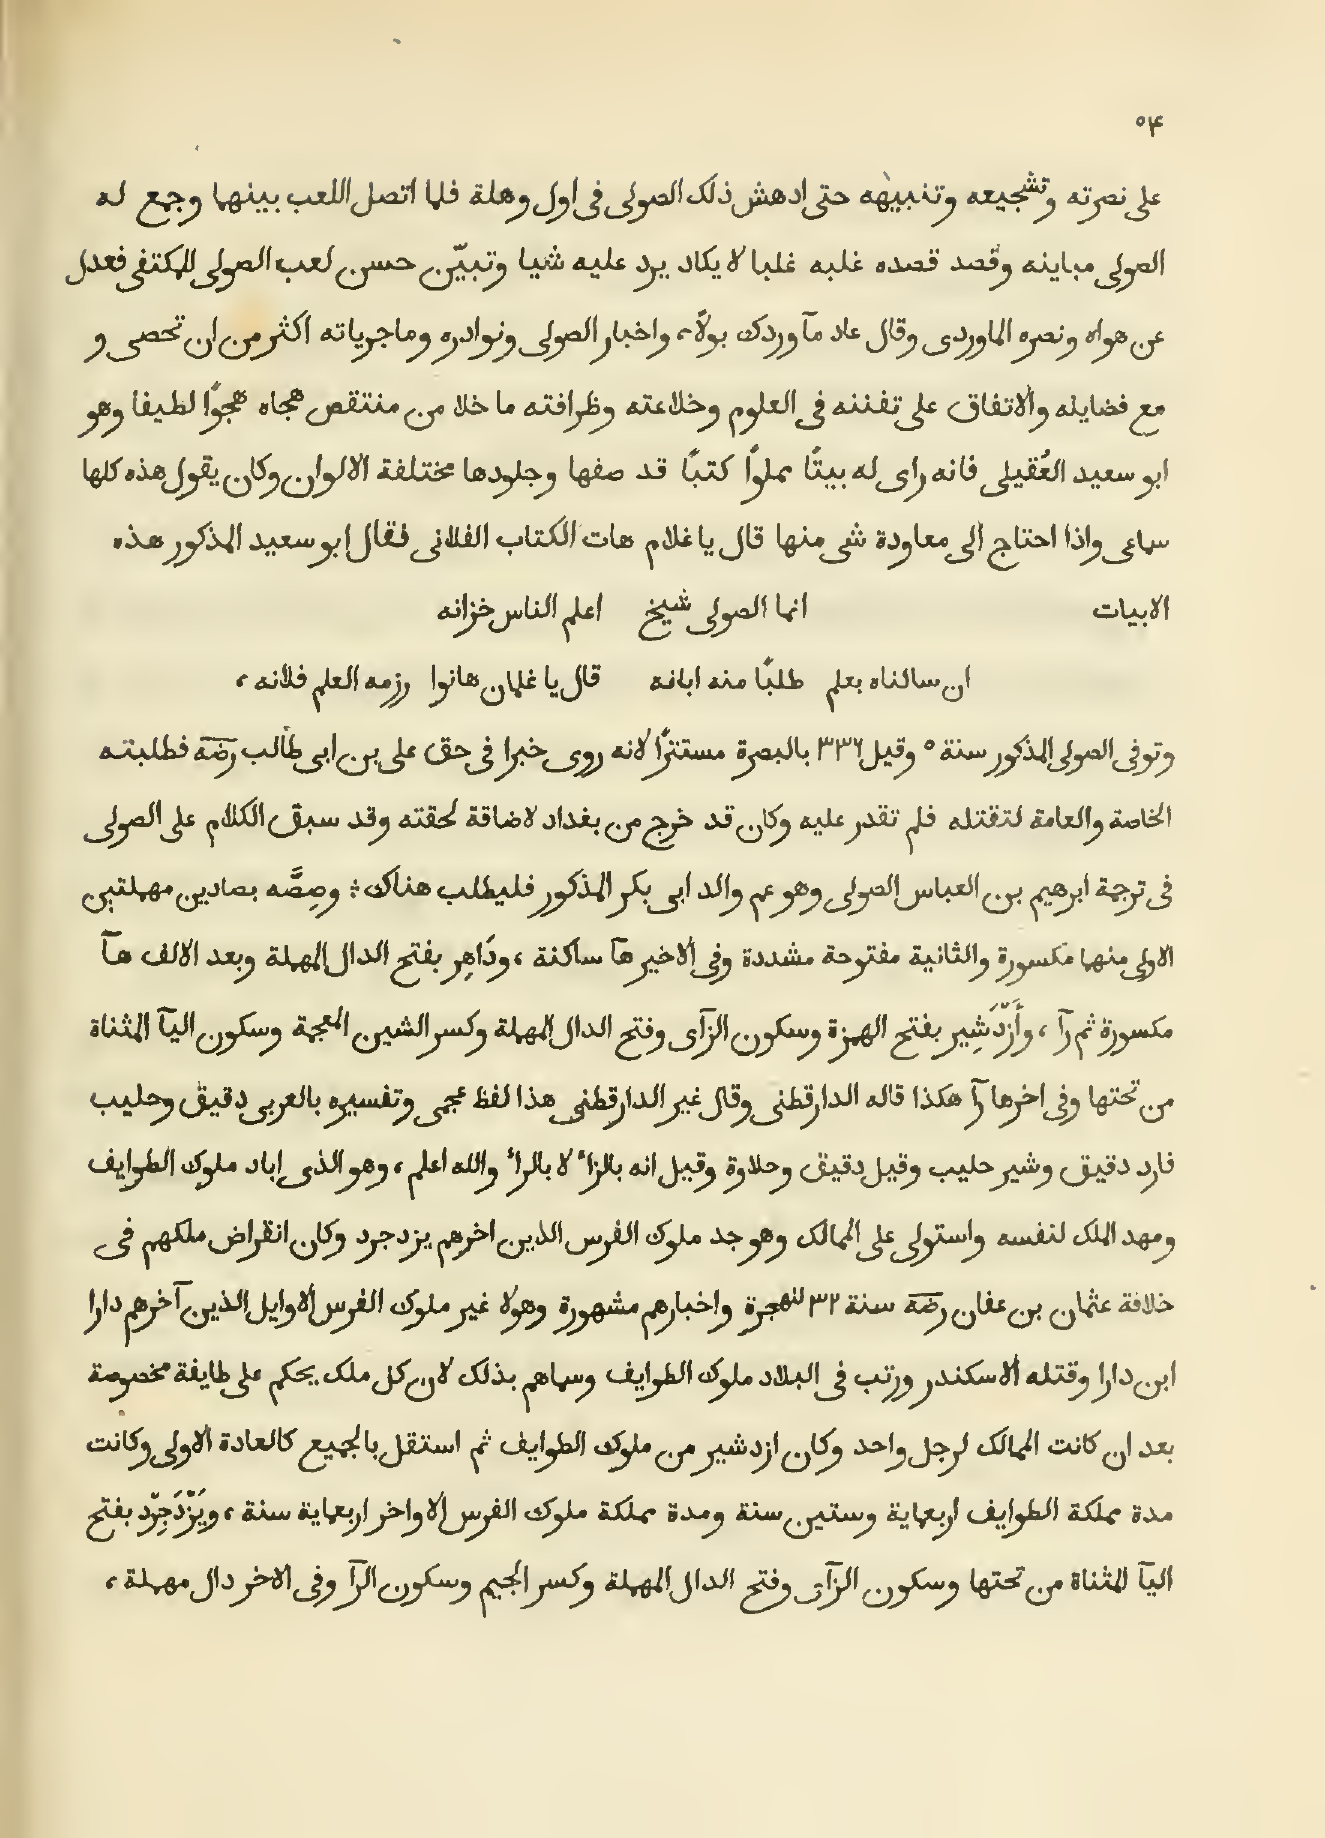 ٥۴
على نصرته وتشجيعه وتنبيهه حتى ادهش ذلك الصولى فى اول وهلة فلما اتصل اللعب بينهما وجمع له
الصولى مباينه وقصد قصده غلبه غلبا لا يكاد يرد عليه شيا وتبيّن حسن لعب الصولى للمكتفى فعدل
عن هواه ونصره الماوردى وقال عاد مآ وردك بولًا، واخبار الصولى ونوادره وماجرياته اكثر من ان تحصى و
مع فضايله والاتفاق على تفننه فى العلوم وخلاعته وظرافته ما خلا من منتقص هجاه هجوًا لطيفا وهو
ابو سعيد العُقيلى فانه راى له بيتًا مملوًا كتبًا قد صفها وجلودها مختلفة الالوان وكان يقول هذه كلها
سماعى واذا احتاج الى معاودة شى منها قال يا غلام هات الكتاب الفلانى فقال ابو سعيد المذكور هذه
الابيات انما الصولى شيخ اعلم الناس خزانه
ان سالناه بعلم طلبًا منه ابانه قال يا غلمان هاتوا رزمه العلم فلانه،
وتوفى الصولى المذكور سنة ٥ وقيل ٣٣٦ بالبصرة مستترًا لانه روى خبرا فى حق على بن ابى طالب رضَه فطلبته
الخاصة والعامة لتقتله فلم تقدر عليه وكان قد خرج من بغداد لاضاقة لحقته وقد سبق الكلام على الصولى
فى ترجمة ابرهيم بن العباس الصولى وهو عم والد ابى بكر المذكور فليطلب هناك؛ وصِصَّه بصادين مهملتين
الاولى منهما مكسورة والثانية مفتوحة مشددة وفى الاخير هآ ساكنة، ودَاهِر بفتح الدال المهملة وبعد الالف هآ
مكسورة ثم رآ، وأَزْدَشِير بفتح الهمزة وسكون الزآى وفتح الدال المهملة وكسر الشين المعجمة وسكون اليآ المثناة
من تحتها وفى اخرها رآ هكذا قاله الدارقطنى وقال غير الدارقطنى هذا لفظ عجمى وتفسيره بالعربى دقيق وحليب
فارد دقيق وشير حليب وقيل دقيق وحلاوة وقيل انه بالزاء لا بالراء والله اعلم، وهو الذى اباد ملوك الطوايف
ومهد الملك لنفسه واستولى على الممالك وهو جد ملوك الفرس الذين اخرهم يزدجرد وكان انقراض ملكهم فى
خلافة عثمان بن عفان رضَه سنة ٣٢ للهجرة واخبارهم مشهورة وهولا غير ملوك الفرس الاوايل الذين آخرهم دارا
ابن دارا وقتله الاسكندر ورتب فى البلاد ملوك الطوايف وسماهم بذلك لان كل ملك يحكم على طايفة مخصوصة
بعد ان كانت الممالك لرجل واحد وكان ازدشير من ملوك الطوايف ثم استقل بالجميع كالعادة الاولى وكانت
مدة مملكة الطوايف اربعماية وستين سنة ومدة مملكة ملوك الفرس الاواخر اربعماية سنة، ويَزْدَجِرْد بفتح
اليآ المثناة من تحتها وسكون الزآى وفتح الدال المهملة وكسر الجيم وسكون الرآ وفى الاخر دال مهملة،